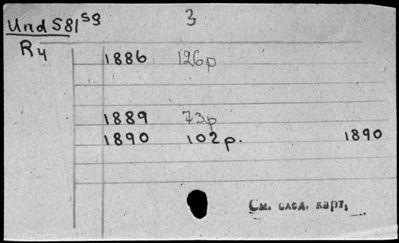 Und S81 S9 3
Ry
1886 126p
1889 73p
1890 102p. 1890
См. след. карт.